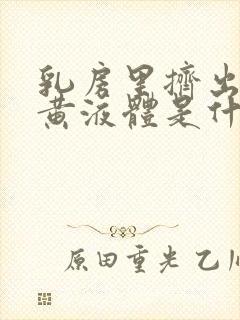 乳房里擠出
黄液體是什
原田重光 乙川